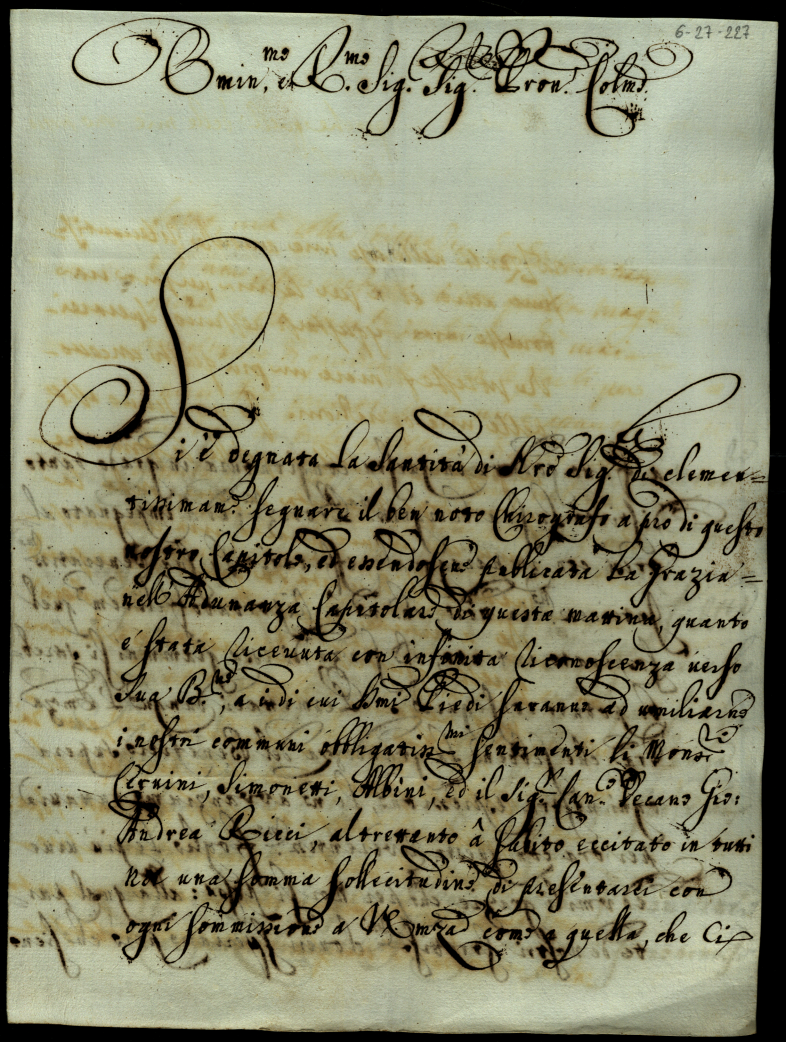 6-27-227
Emin.mo, e R.mo Sig. Sig. Pron. Colmo.
Si è degnata la Santità di Nro Sig.re di clemen=
tissimam.e segnare il ben noto Chirografo a prò di questo
nostro Capitolo, ed essendosene publicata la grazia=
nell'Adunanza Capitolare di questa mattina, quanto
è stata ricevuta con infinita riconoscenza verso
Sua B.ne, a i di cui Smi Piedi saranno ad umiliarne
i nostri communi obbligatiss.mi sentimenti li Mons.ri
Cervini, Simonetti, Albini, ed il Sig.r Can.o Decano Gio:
Andrea Ricci, altretanto à subito eccitato in tutti
noi una somma sollecitudine di presentarci con
ogni sommissione a V. Emza come a quella, che ci